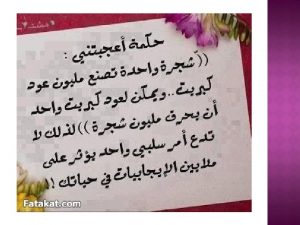 حكمة أعجبتني :
(( شجرة واحدة تصنع مليون عود
كبريت .. ويمكن لعود كبريت واحد
أن يحرق مليون شجرة )) لذلك لا
تدع أمر سلبي واحد يؤثر على
ملايين الإيجابيات في حياتك !!
Fatakat.com